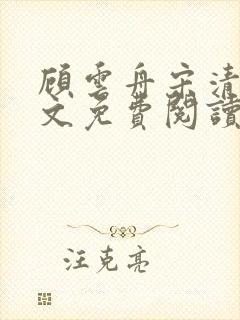 顧雲舟宋清
文免費閱讀
汪克亮